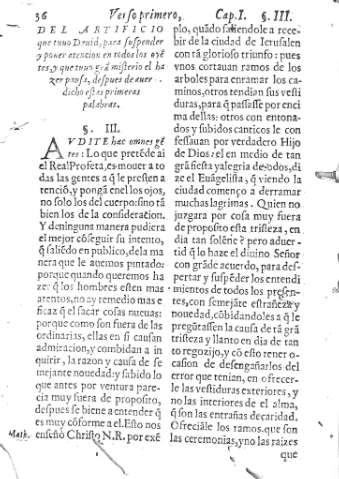 36 Verso primero, Cap. I. §. III.
DEL ARTIFICIO
que tuuo Dauid, para suspender
y poner atencion en todos los oyẽ
tes, y que tuuo grã misterio el ha
zer pausa, despues de auer
dicho estas primeras
palabras.
§. III.
AVDITE hæc omnes gẽ
tes: Lo que pretẽde aì
el Real Profeta, es mouer a to
das las gentes a q̃ le presten a
tenciõ, y pongã enel los ojos,
no solo los del cuerpo: sino tã
bien los de la consideration.
Y de ninguna manera pudiera
el mejor cõseguir su intento,
q̃ saliẽdo en publico, de la ma
nera que le auemos pintado:
porque quando queremos ha
ze: q̃ los hombres esten mas
atentos, no ay remedio mas e
ficaz q̃ el sacar cosas nueuas:
porque como son fuera de las
ordinarias, ellas en si causan
admiracion, y combidan a in
quirir, la razon y causa de se
mejante nouedad: y sabido lo
que antes por ventura pare-
cia muy fuera de proposito,
despues se biene a entender q̃
es muy cõforme a el. Esto nos
Math. enseñò Christo N.R. por exẽ
plo, quãdo saliendole a rece-
bir de la ciudad de Ierusalen
con tã glorioso triunfo: pues
vnos cortauan ramos de los
arboles para enramar los ca-
minos, otros tendian sus vesti
duras, para q̃ passasse por enci
ma dellas: otros con entona-
dos y subidos canticos le con
fessauan por verdadero Hijo
de Dios: el en medio de tan
grã fiesta y alegria de todos, di
ze el Euãgelista, q̃ viendo la
ciudad començo a derramar
muchas lagrimas. Quien no
juzgara por cosa muy fuera
de proposito esta tristeza, en
dia tan solẽne? pero aduer-
tid q̃ lo haze el diuino Señor
con grãde acuerdo, para des-
pertar y suspẽder los entendi
mientos de todos los presen-
tes, con semejãte estrañeza y
nouedad, cõbidandoles a q̃ le
pregũtassen la causa de tã grã
tristeza y llanto en dia de tan
to regozijo, y cõ esto tener o-
casion de desengañarlos del
error que tenian, en ofrecer-
le las vestiduras exteriores, y
no las interiores de el alma,
q̃ son las entrañas de caridad.
Ofrecíãle los ramos, que son
las ceremonias, y no las raizes
que